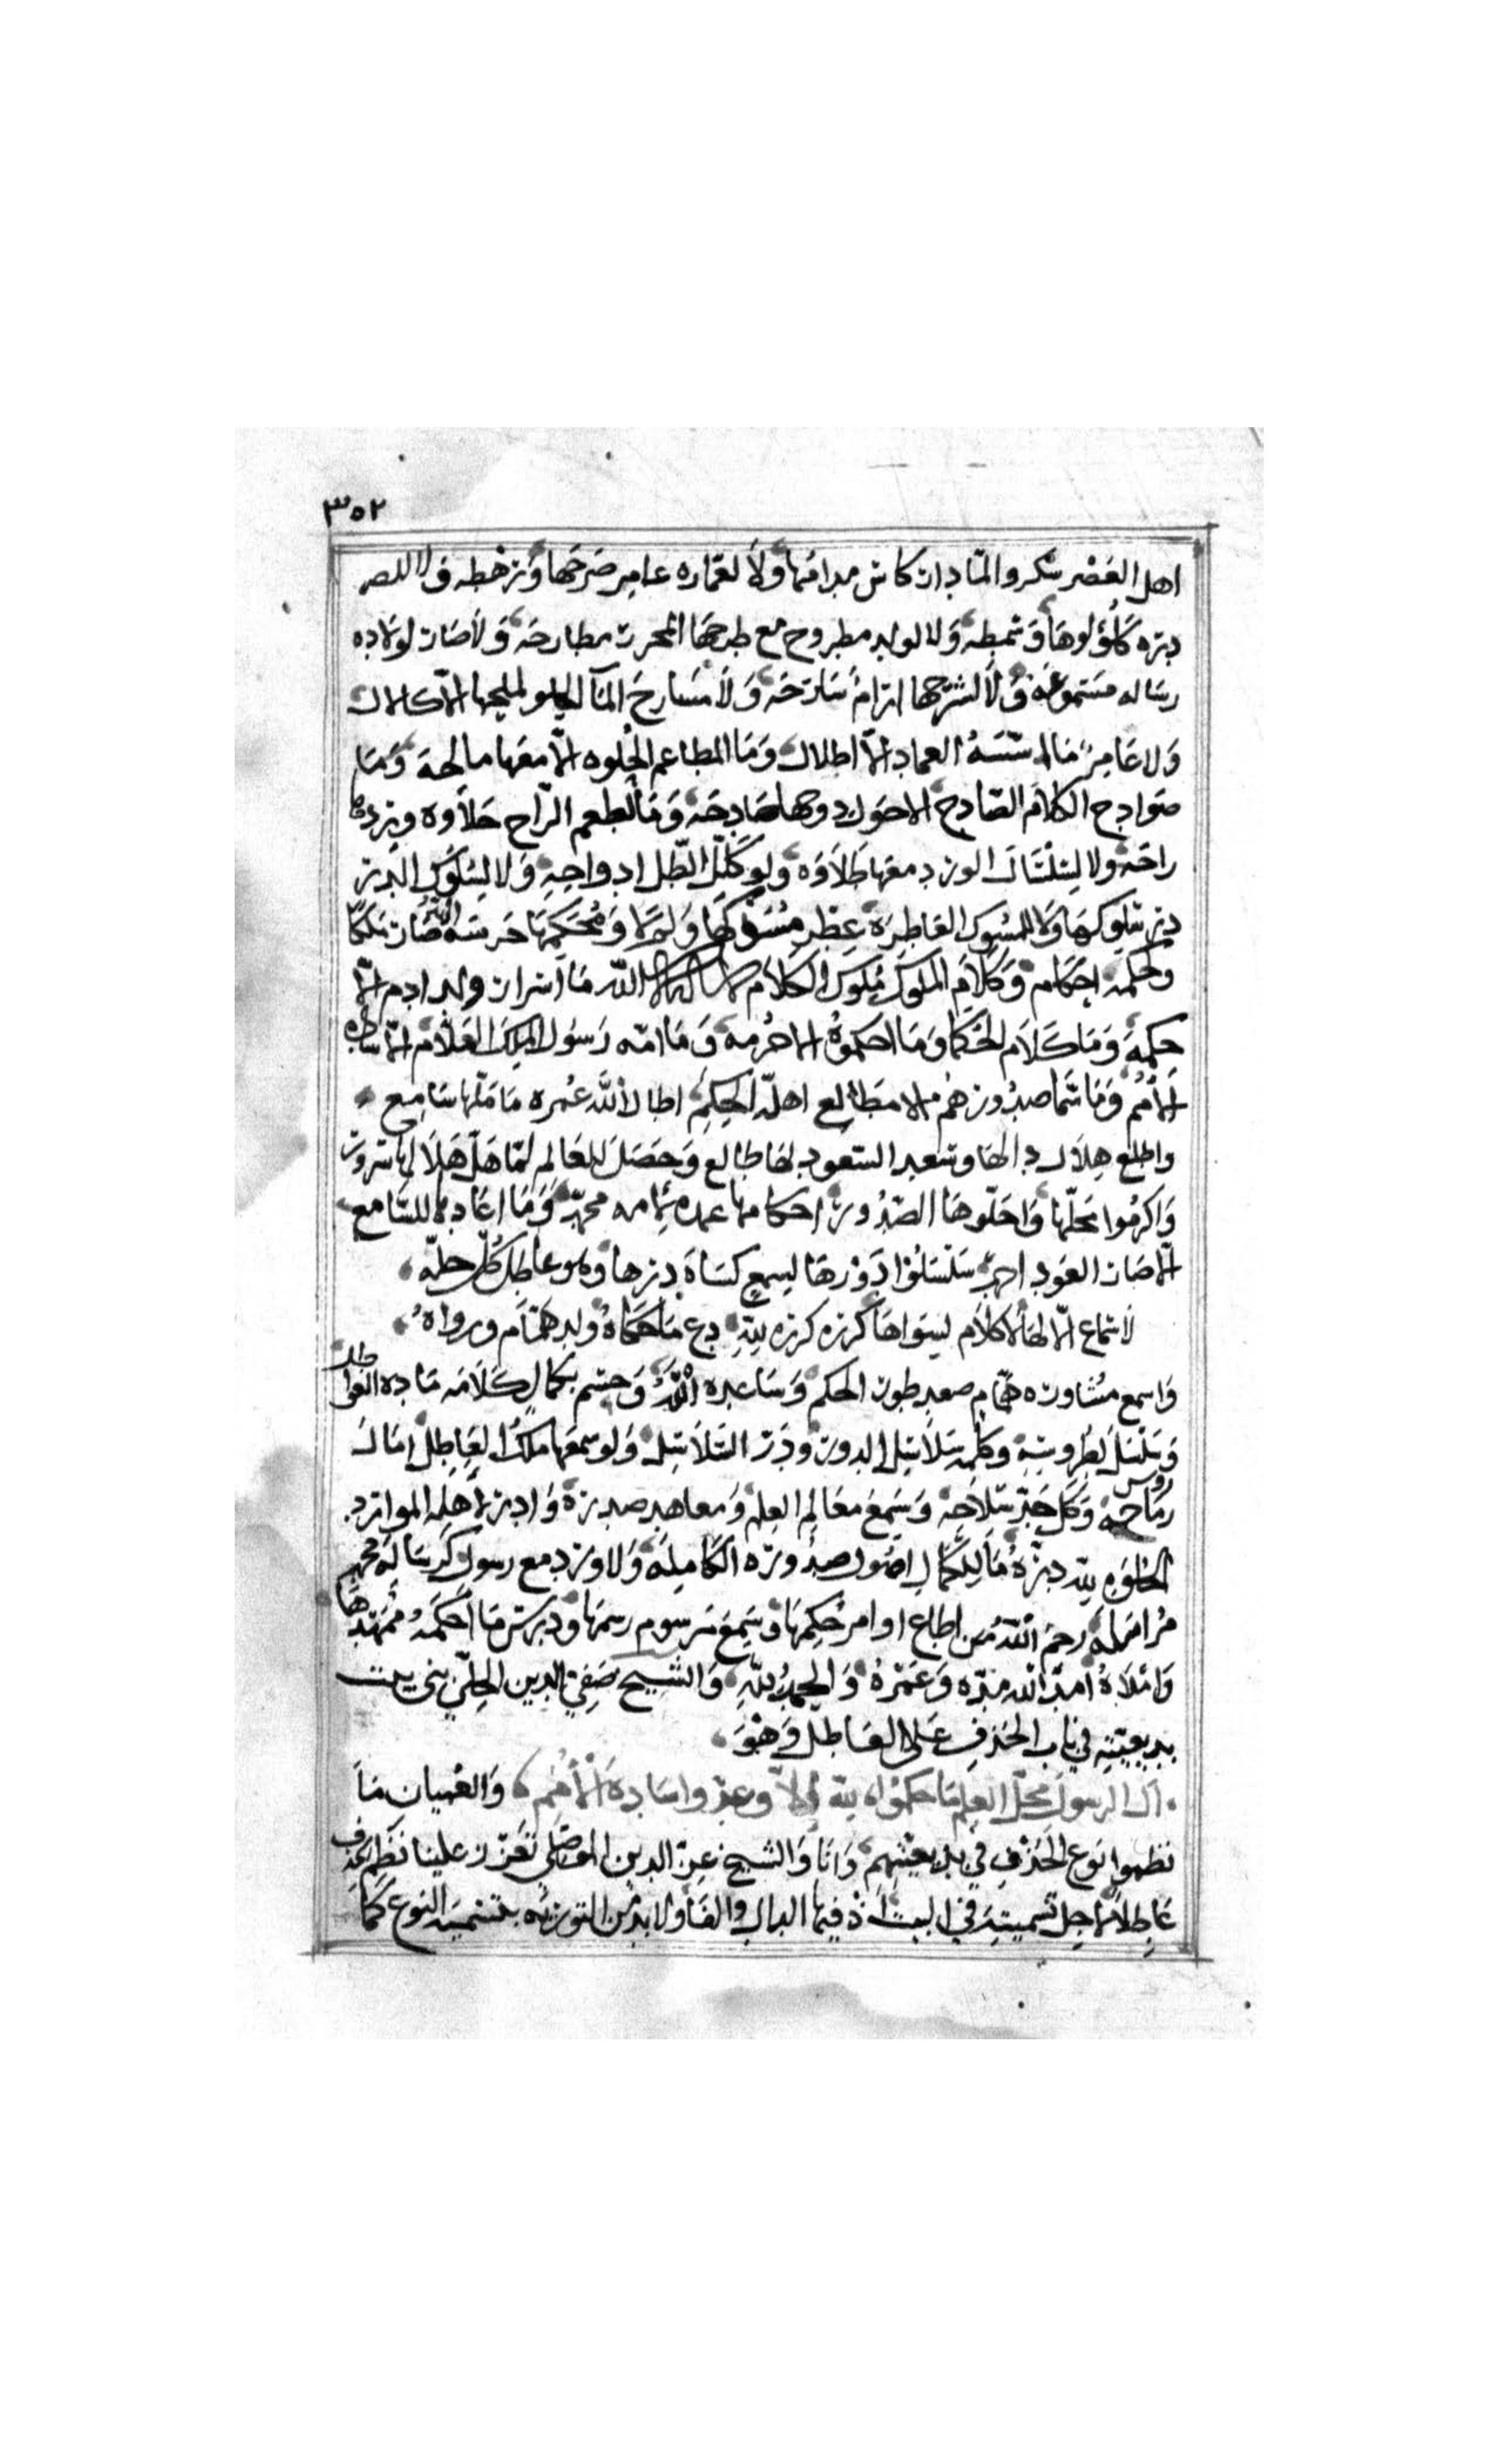 ٣٥٢
اهل العصر سكروا لما دار كاس مدامها ولا لعماره عامر صرحها ورهطه ولا
دره كلؤلوها وسمطه ولا لولد مطروح مع طرحها المحرر مطارحه ولا صار لولاده
رساله مسموعه ولا لشرحها ارام سارحه ولا مسارح الا كلال
ولا عامر ما اسسه العماد الا اطلال وما المطاعم الحلوه الا معها مالحه وما
صوادح الكلام الصادح الا حول دوحها صادحه وما لطعم الراح حلاوه وردها
راحه ولا لسلسال الورد معها طلاوه ولو كلل الطل ادواحه ولا لسلوك الدر
در سلوكها ولا للمسوك العاطره عطر مسوكها ومحكمها حرسه الله صار ملكا
وحكمه احكام وكلام الملوك ملوك الكلام الله ما اسرار ولد ادم الا
حكمه وما كلام الحكما وما احكموه الا حرمه وما امه رسول الملك العلام الا ساده
الامم وما سما صدورهم الا مطالع اهله الحكم اطال الله عمره ما ملها سامع
واطلع هلال دالها وسعد السعود لها طالع وحصل للعالم لما هل هلالها سرور
واكرموا محلها واحلوها الصدور احكامها عمده محمد وما اعادها للسامع
الا صار العود احمد سلسلوا دورها ليسمع كساه درها وهو عاطل كل حله
لا سماع الا لهاالكلام لسواها كرره كرره لله دع ما حكاه ولد همام ورواه
واسمع مشاوره همام صعد طور الحكم وساعده الله وحسم بكمال كلامه ماده العواطل
وسلسل لطروسه وكلمه سلاسل الدور ودر السلاسل ولو سمعها ملك العاطل امال
روس رماحه وكل حد سلاحه وسمع معالم العلم ومعاهد صدره وادر لاهله الموارد
الحلوه لله دره ما للكمال اصول صدوره الكامله ولا ورد مع رسول كرساله محمد
مراسله رحم الله من اطاع اوامر حكمها وسمع مرسوم رسمها ودرس ما احكمه ممهدها
واملاه امد الله مدده وعمره والحمد لله والشيخ صفي الدين الحلي بنى بيت
بديعيته في باب الحذف على العاطل وهو
ال الرسول محل العلم ما حكموا لله الا وعدوا سادة الامم والعميان ما
نظموا نوع الحذف في بديعيتهم وانا والشيخ عز الدين الموصلي تعزر علينا نظم الحذف
عاطلا لاجل تسميته في البيت اذ فيها الذال والفا ولا بد من التوريه بتسميه النوع كما